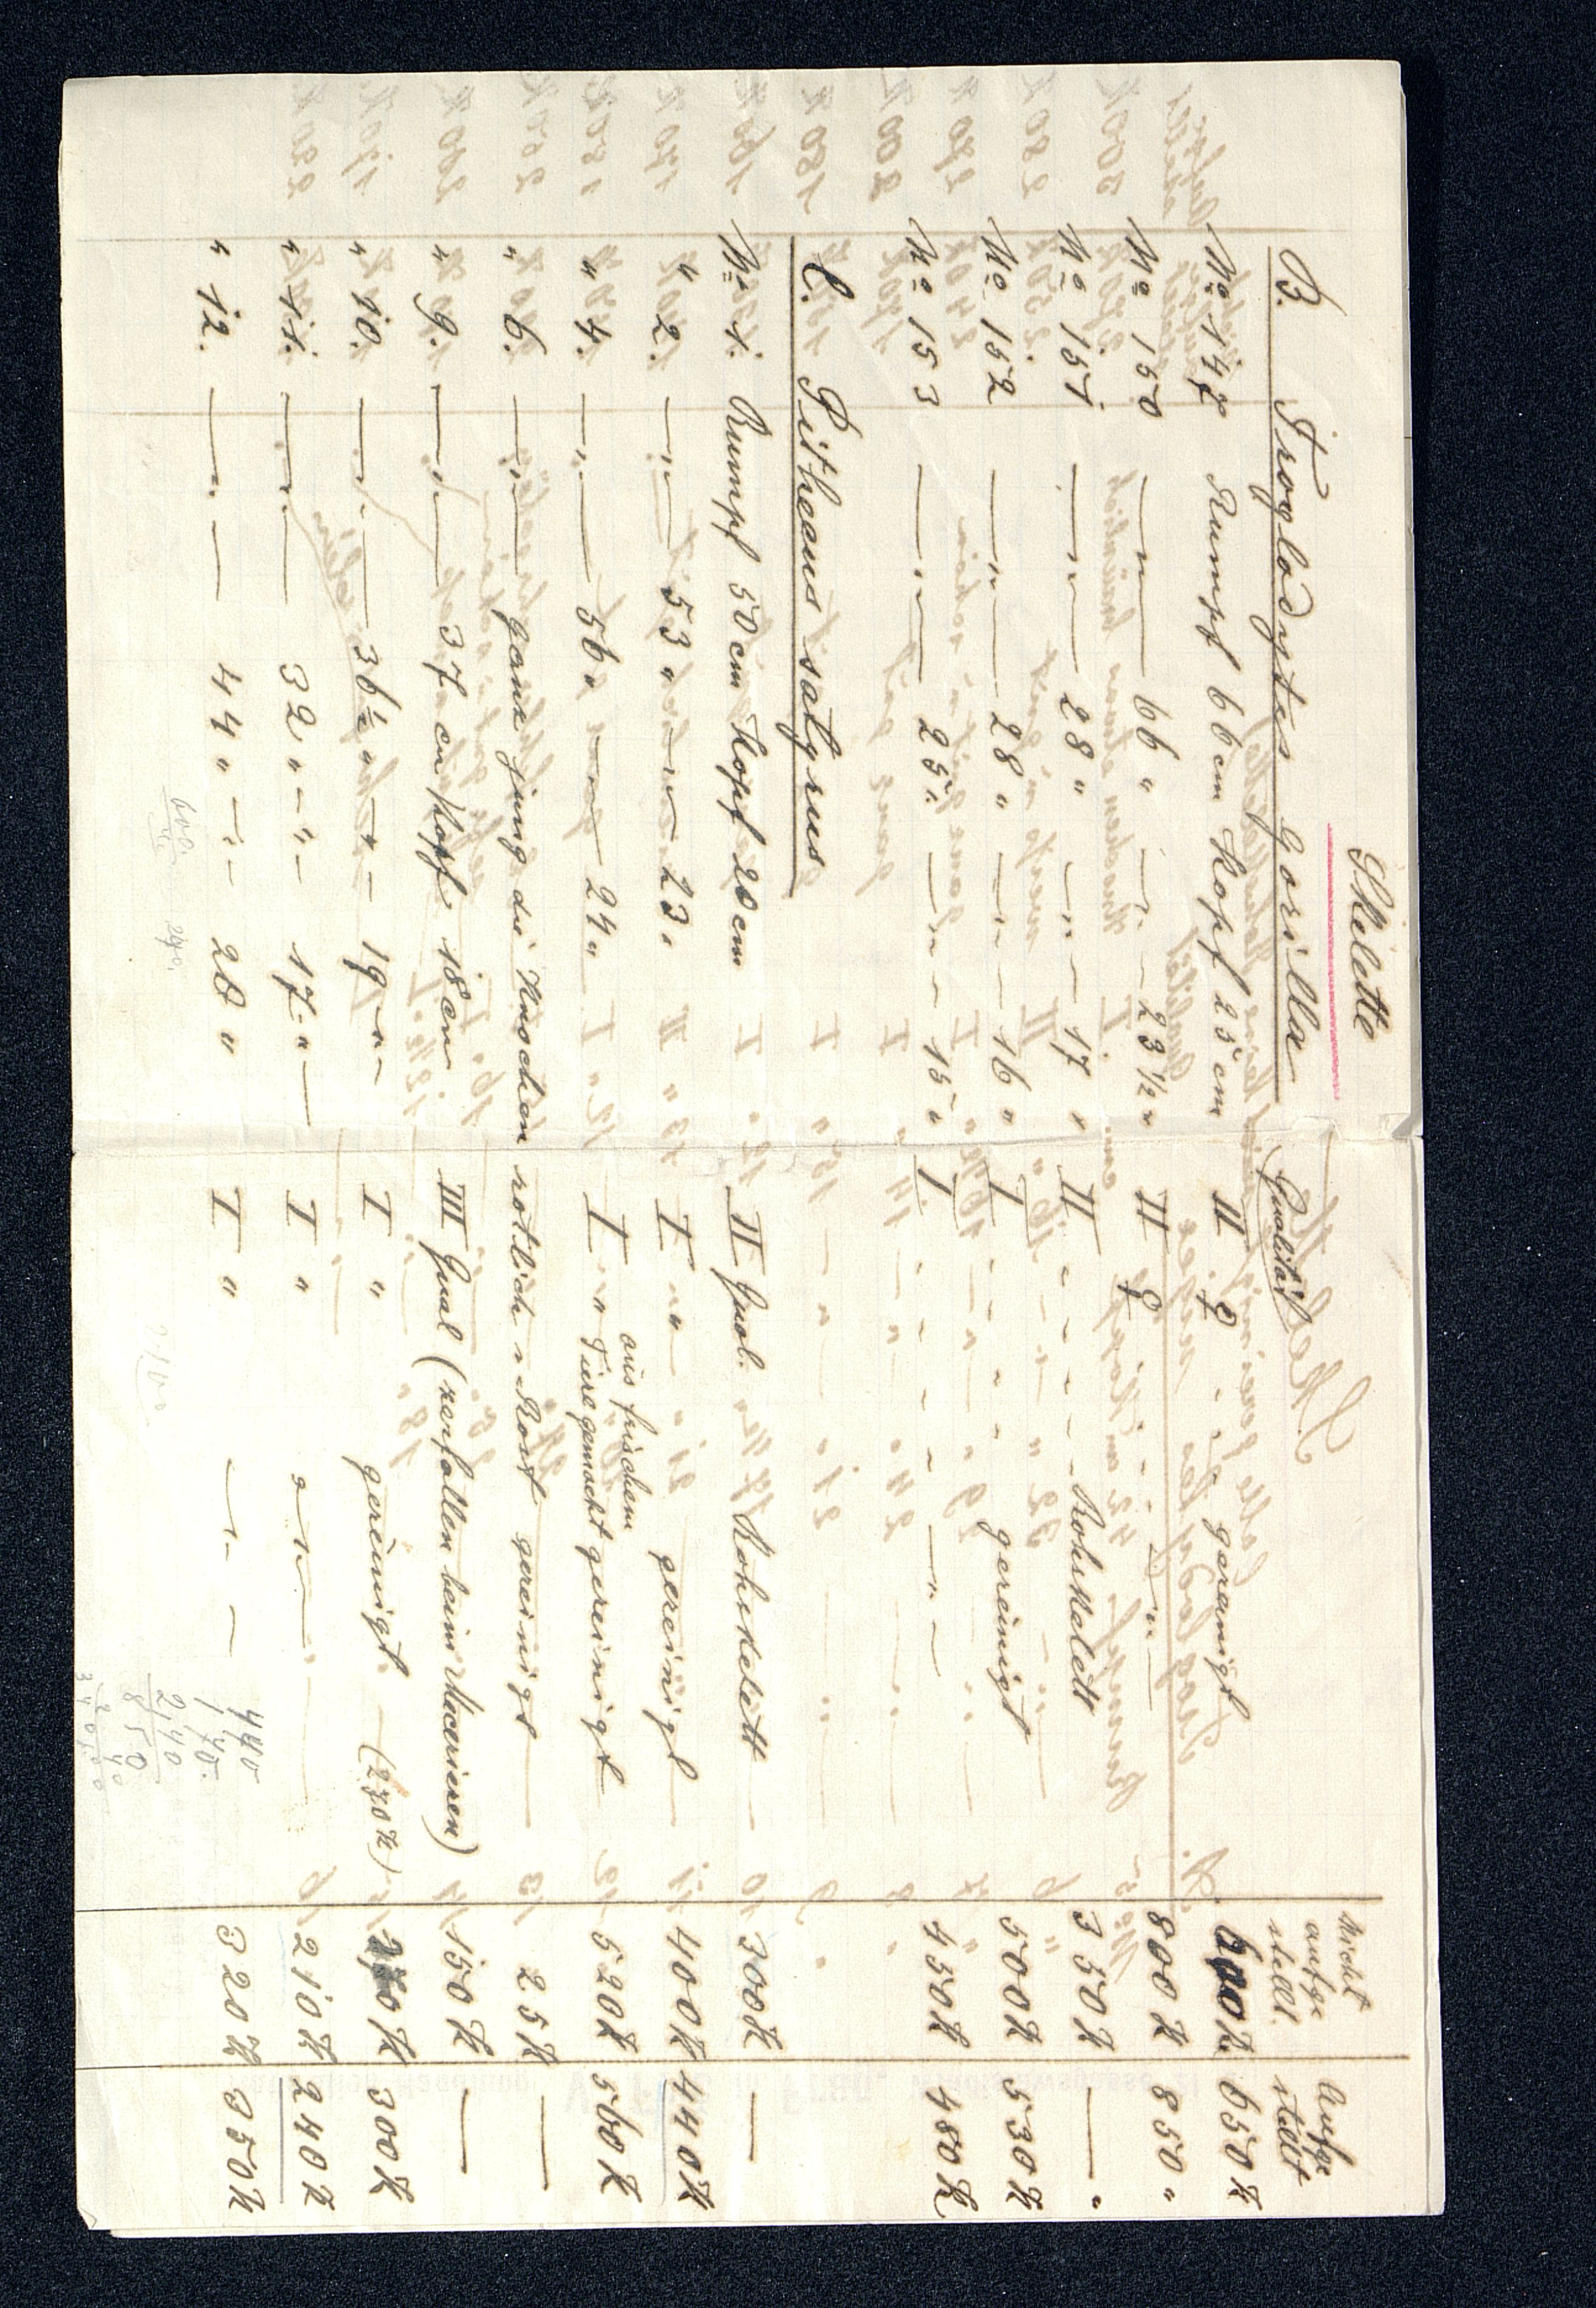 Skelette
Nicht aufge stellt. Aufge stellt
B. Troglodytes gorilla Qualität
No 147 Rumpf 66 cm Kopf 25 cm II ♀ " " gereinigt 600 K 650 K
No 150 — " — 66 " — " — 23 1/2 " II ♀ " " — " — 800 K 850 "
No 151 — " — 28 " — " — 17 " II " " " Rohskelett 350 K — "
No 152 — " — 28 " — " — 16 " I " " " gereinigt 500 K 530 K
No 153 — " — 25 " — " — 15 " I " " " — " — 450 K 480 K
C. Pithecus satyrus
No 1. Rumpf 50 cm Kopf 20 cm II Qual. Rohskelett 300 K —
" 2. — " — 53 " — " — 23 " I " gereinigt 400 K 440 K
" 4. — " — 56 " — " — 24 " I " aus frischem Tiere gemacht gereinigt 520 K 560 K
" 6. — " — ganz jung die Knochen rötlich v. Rost gereinigt 25 K —
" 9. — " — 37 cm Kopf 18 cm III Qual (zerfallen beim Macerieren) 150 K —
" 10. — " — 36 1/2 " — " — 19 " I " gereinigt. (270 K) 270 K 300 K
" 11. — " — 32 " — " — 17 " I " — " — 210 K 240 K
" 12. — " — 44 " — " — 20 " I " — " — 320 K 350 K
440
170.
240
850